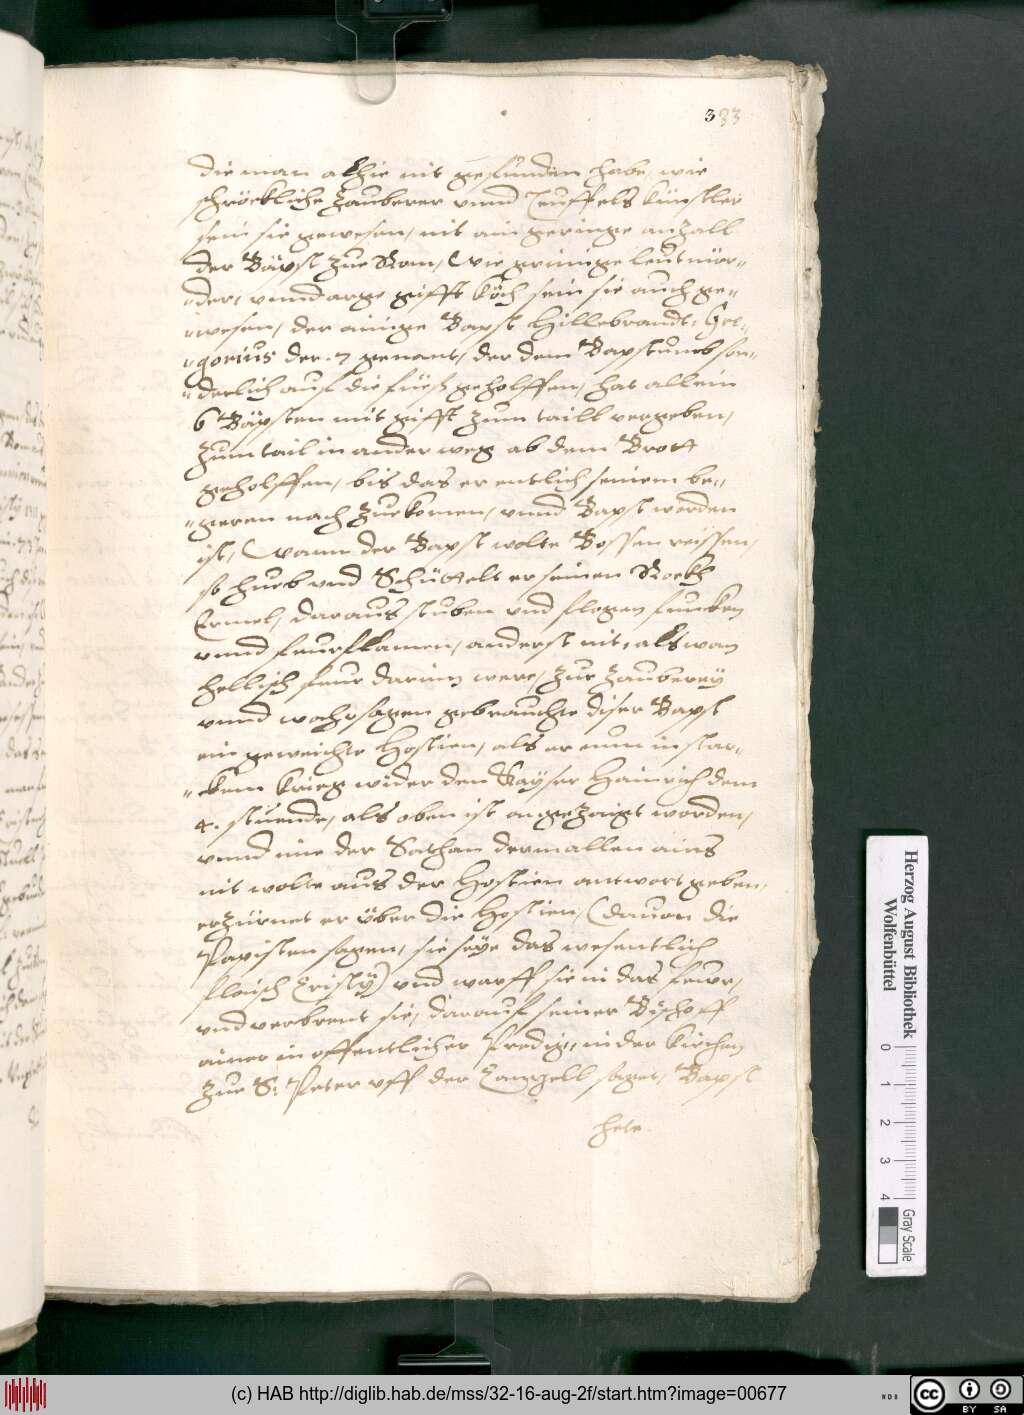 333
die man alhie nit gefunden habe, wie
schröckliche Zauberer vnnd Teuffels künstler
sein sie gewesen, nit ain geringe anzall
der Bäpst zue Rom, Wie grimige leutmör-
-der, vnnd arge gifft köch sein sie auch ge-
-wesen, der ainige Bapst Hillebrandt, Gre-
-gorius der .7 genant, der dem Bapstumb son-
-derlich auf die füesz geholffen, hat allein
6 Bäpsten mit gifft zum taill vergeben,
zum tail in ander weg ab dem Brott
geholffen, bis das er entlich seinem be-
-geren nach zuekomen, vnnd Bapst worden
ist, Wann der Bapst wolte Bossen reissen,
so hueb vnd Schüttelt er seinen Rockh
Ermel, daraus stuben vnd flogen funcken
vnnd feurflamen, anderst nit, als wan
hellisch feur darinn were, zur Zauberey
vnnd wahrsagen gebrauchte diser Bapst
ein geweichte Hostien, als er nun in star-
-ckem krieg wider den Kayser Hainrich dem
4. stuende, als oben ist angezaigt worden,
vnnd ime der Sathan dermallen ains
nit wolte aus der Hostien antwort geben,
erzürnet er über die Hostien, (dauon die
Papisten sagen, sie seye das wesentlich
fleisch Cristy) vnd warff sie in das feur,
vnd verbrent sie, darauf seiner Bischoff
ainer in offentlicher Predig, in der kirchen
zue S: Peter vff der Cantzell saget, Bapst
hete.
Herzog August Bibliothek
Wolfenbüttel
0
1
2
3
4
Gray Scale
(c) HAB http://diglib.hab.de/mss/32-16-aug-2f/start.htm?image=00677
cc
BY SA